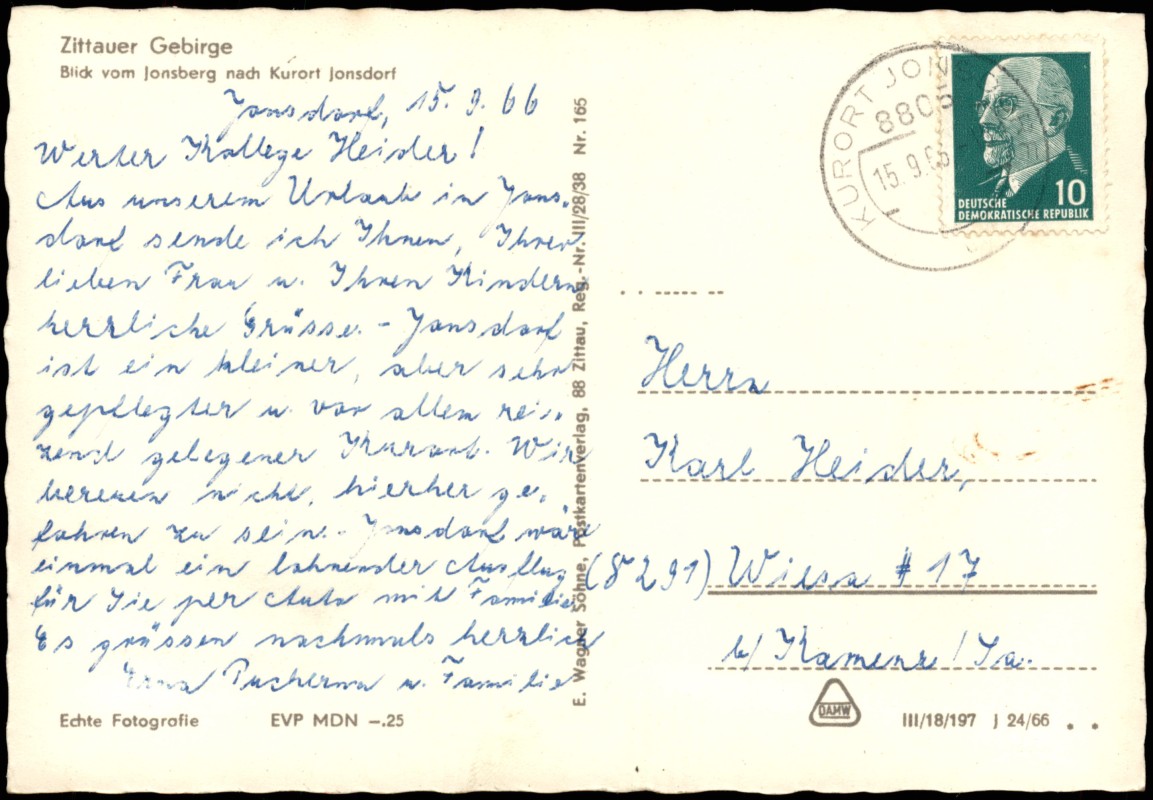 Zittauer Gebirge
Blick vom Jonsberg nach Kurort Jonsdorf
Jonsdorf, 15. 9. 66
Werter Kollege Heider!
Aus unserem Urlaub in Jons-
dorf sende ich Ihnen, Ihrer
lieben Frau u. Ihren Kindern
herzliche Grüsse. - Jonsdorf
ist ein kleiner, aber sehr
gepflegter u. vor allem rei-
zend gelegener Kurort. Wir
bereuen nicht, hierher ge-
fahren zu sein. - Jonsdorf wäre
einmal ein lohnender Ausflug
für Sie per Auto mit Familie
Es grüssen nochmals herzlich
Erna u. Familie
Echte Fotografie EVP MDN –.25
E. Wagner Söhne, Postkartenverlag, 88 Zittau, Reg.-Nr. III/28/38 Nr. 165
KURORT JONS
8805
15.9.66
DEUTSCHE
DEMOKRATISCHE REPUBLIK
10
Herrn
Karl Heider,
(8291) Wiesa # 17
b/ Kamenz / Sa.
DAMW
III/18/197 J 24/66